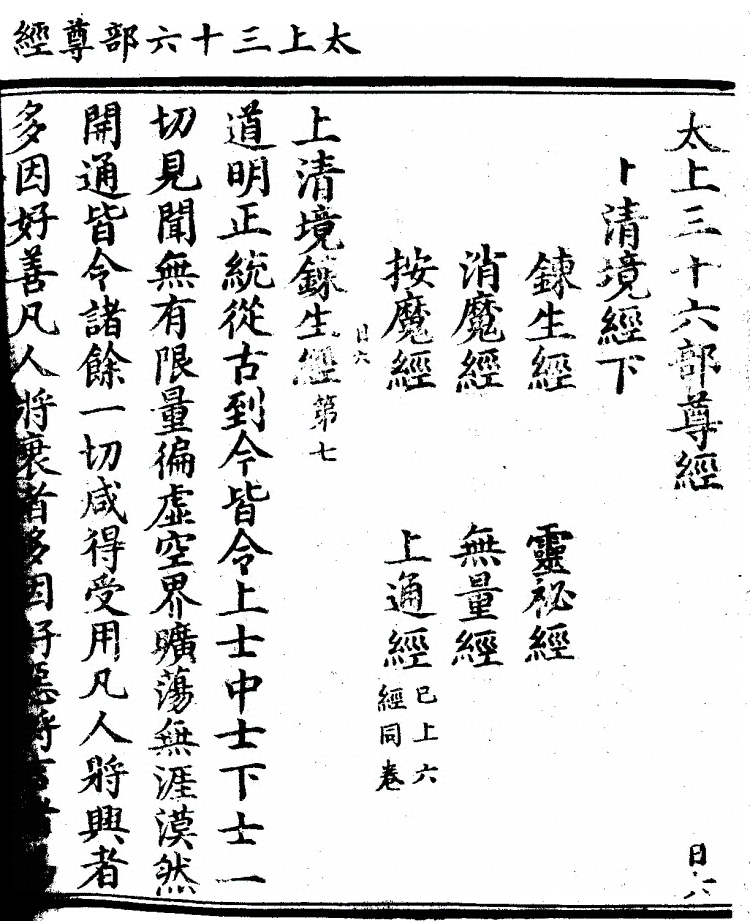 太上三十六部尊經
太上三十六部尊經 日六
上清境經下
鍊生經 靈祕經
消魔經 無量經
按魔經 上通經 已上六經同卷
日六
上清境鍊生經第七
道明正統從古到今皆令上士中士下士一
切見聞無有限量徧虛空界曠蕩無涯漠然
開通皆令諸餘一切咸得受用凡人將興者
多因好善凡人將衰者多因好惡將